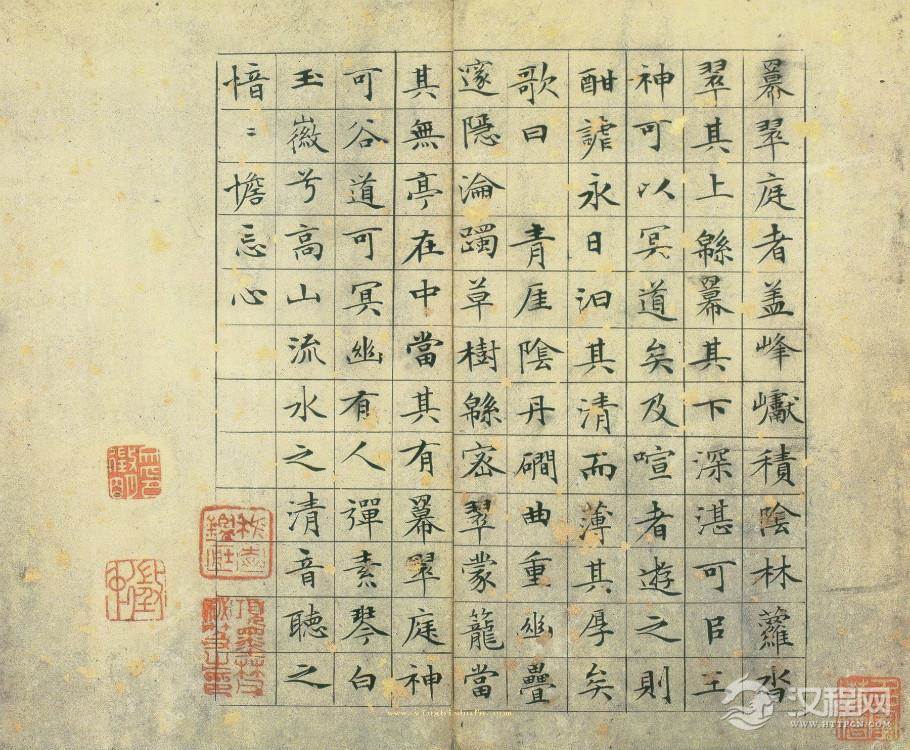 羃翠庭者盖峰巘積陰林蘿沓
翠其上緜羃其下深湛可㠯王
神可以冥道矣及喧者遊之則
酣謔永日汩其清而薄其厚矣
歌曰　青厓陰丹磵曲重幽疊
邃隱淪躅草樹緜密翠蒙籠當
其無亭在中當其有羃翠庭神
可谷道可冥幽有人彈素琴白
玉徽兮高山流水之清音聽之
愔〻憺忘心
汉程网
WWW.HTTPCN.COM